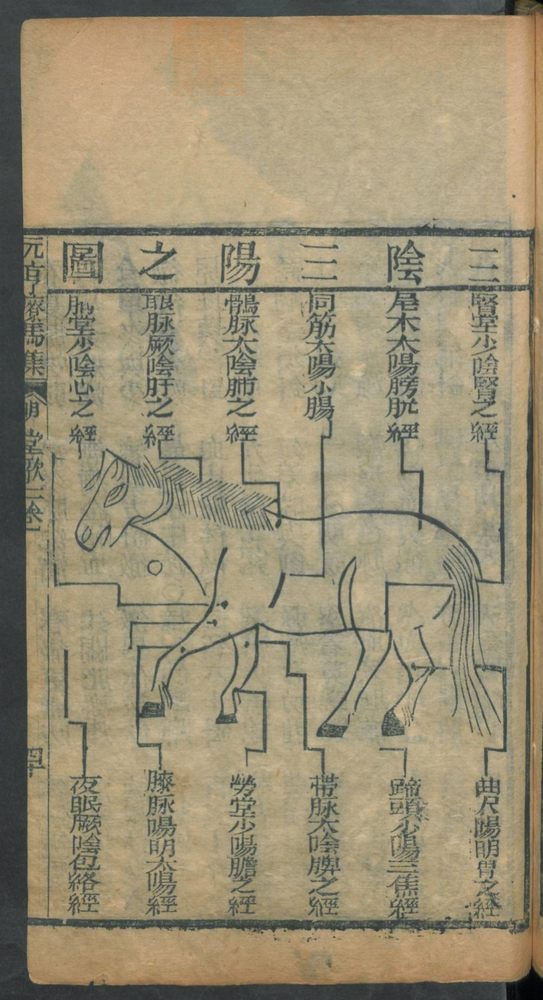 三陰三陽之圖
腎堂少陰腎之經
尾木太陽膀胱經
同筋太陽小腸
鶻脉太陰肺之經
眼脉厥陰肝之經
胸堂少陰心之經
曲尺陽明胃之經
蹄頭少陽三焦經
帶脉太陰脾之經
勞堂少陽膽之經
膝脉陽明大腸經
夜眼厥陰包絡經
元亨療馬集
明堂歌